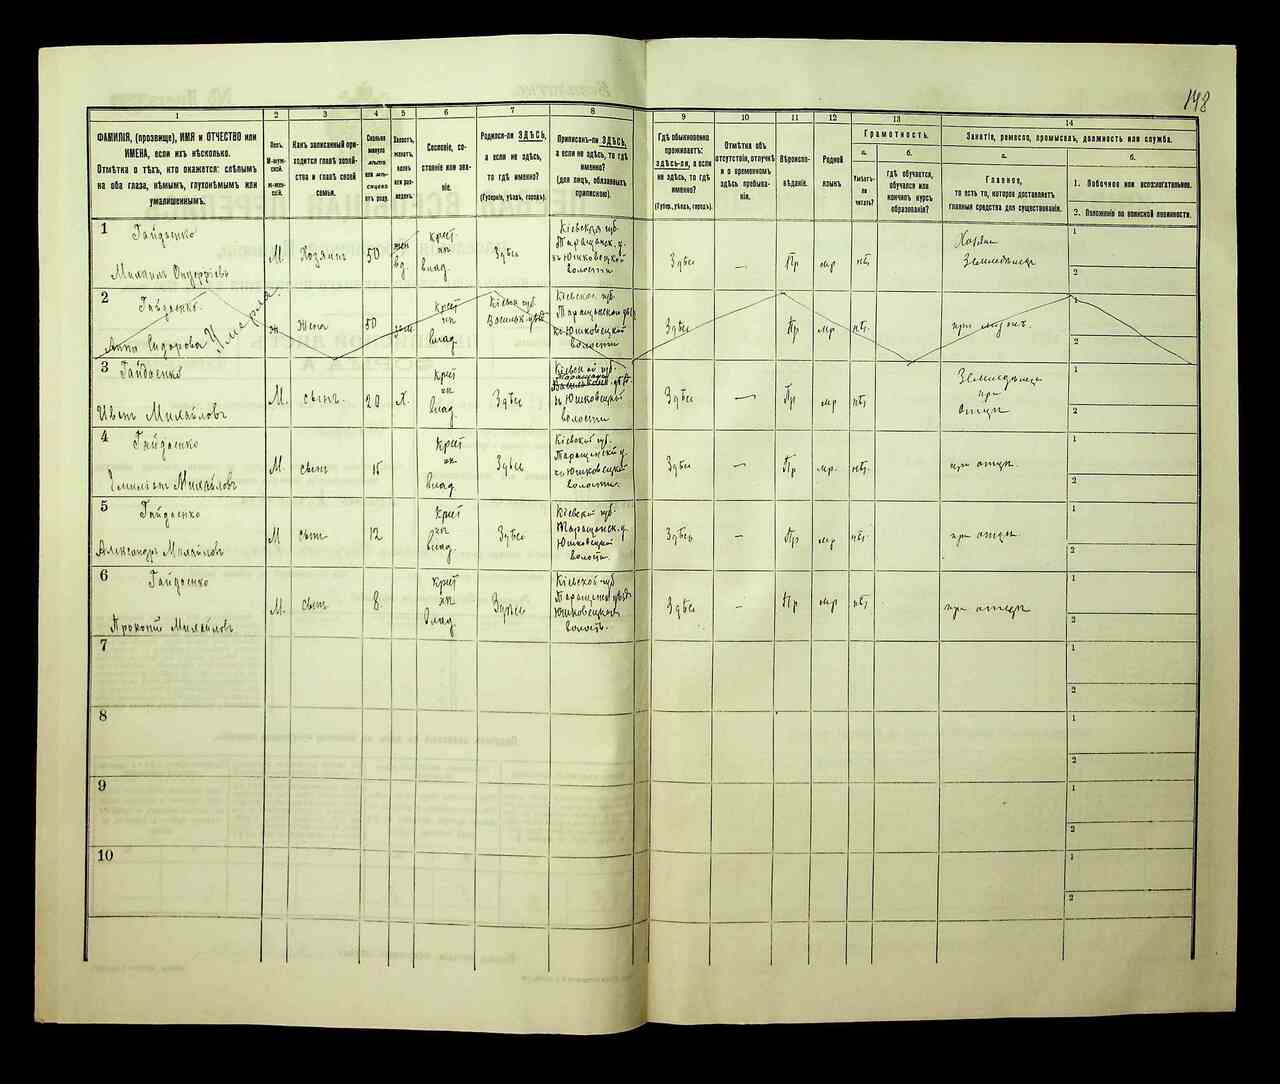 148
1
2
3
4
5
6
7
8
9
10
11
12
13
14
ФАМИЛІЯ, (прозвище), ИМЯ и ОТЧЕСТВО или
ИМЕНА, если ихъ нѣсколько.
Отмѣтка о тѣхъ, кто окажется: слѣпымъ
на оба глаза, нѣмымъ, глухонѣмымъ или
умалишеннымъ.
Полъ.
М-муж-
ской.
ж-жен-
скій.
Какъ записанный при-
ходится главѣ хозяй-
ства и главѣ своей
семьи.
Сколько
минуло
лѣтъ
или мѣ-
сяцевъ
отъ роду.
Холостъ,
женатъ,
вдовъ
или раз-
веденъ.
Сословіе, со-
стояніе или зва-
ніе.
Родился-ли ЗДѢСЬ,
а если не здѣсь,
то гдѣ именно?
(Губернія, уѣздъ, городъ).
Приписанъ-ли ЗДѢСЬ,
а если не здѣсь, то гдѣ
именно?
(для лицъ, обязанныхъ
припискою).
Гдѣ обыкновенно
проживаетъ:
здѣсь-ли, а если
не здѣсь, то гдѣ
именно?
(Губер., уѣздъ, городъ).
Отмѣтка объ
отсутствіи, отлучкѣ
и о временномъ
здѣсь пребыва-
ніи.
Вѣроиспо-
вѣданіе.
Родной
языкъ
Грамотность.
а.
Умѣетъ-
ли
читать?
б.
гдѣ обучается,
обучался или
кончилъ курсъ
образованія?
Занятіе, ремесло, промыселъ, должность или служба.
а.
Главное,
то есть то, которое доставляетъ
главныя средства для существованія.
б.
1. Побочное или вспомогательное.
2. Положеніе по воинской повинности.
1
Гайдаенко
Михаилъ
М
Хозяинъ
50
жен
вд.
Крест
изъ
влад.
Здѣсь
Кіевская губ.
Таращанск. у.
въ Юшковецкой
волости
Здѣсь
—
Пр
мр
нѣт.
Хозяин
Земледѣлец
1
2
2
Гайдаенко.
Анна Сидорова Умерла
ж
Жена
50
зам
Крест
изъ
влад.
Кіевск губ.
Васильк уѣзд
Кіевской губ.
Таращанск уѣз
въ Юшковецкой
волости
Здѣсь
Пр
мр
нѣт.
при мужѣ.
1
2
3
Гайдаенко
Иванъ Михайловъ
М.
сынъ.
20
х.
Крест
изъ
влад.
Здѣсь
Кіевской губ.
Таращанск
Васильковск. уѣзд.
въ Юшковецкой
волости
Здѣсь
—
Пр
мр
нѣт.
Земледѣлец
при
отцѣ
1
2
4
Гайдаенко
Михайловъ
М.
сынъ
15
Крест
изъ
влад.
Здѣсь
Кіевской губ.
Таращанск у.
въ Юшковецкой
волости.
Здѣсь
—
Пр
мр.
нѣт.
при отцѣ.
1
2
5
Гайдаенко
Александръ Михайловъ
М
сынъ
12
Крест
изъ
влад.
Здѣсь
Кіевской губ.
Таращанск. у.
Юшковецкой
волость.
Здѣсь
—
Пр
мр
нѣт.
при отцѣ
1
2
6
Гайдаенко
Прокопій Михайловъ
М.
сынъ
8.
Крест
изъ
влад.
Здѣсь
Кіевской губ
Таращанск уѣзд
Юшковецкой
волость.
Здѣсь
—
Пр
мр
нѣт.
при отцѣ
1
2
7
1
2
8
1
2
9
1
2
10
1
2